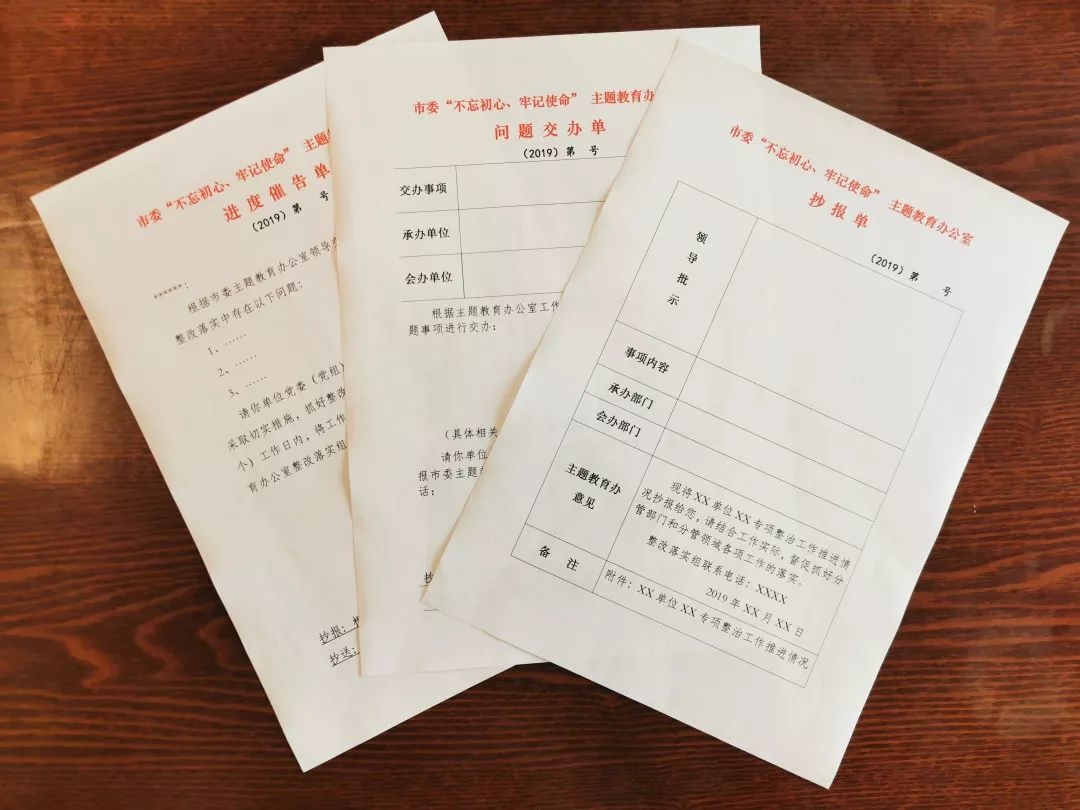 市委“不忘初心、牢记使命” 主题
进度催告单
（2019）第 号
******：
根据市委主题教育办公室领导
整改落实中存在以下问题：
1、……
2、……
3、……
请你单位党委（党组）
采取切实措施，抓好整改
个）工作日内，将工作
育办公室整改落实组
抄报：
抄送：
市委“不忘初心、牢记使命” 主题教育办
问题交办单
（2019）第 号
交办事项
承办单位
会办单位
根据主题教育办公室工作
题事项进行交办：
（具体相关
请你单位
报市委主题
话：
市委“不忘初心、牢记使命” 主题教育办公室
抄报单
（2019）第 号
领导批示
事项内容
承办部门
会办部门
主题教育办
意见
现将XX单位XX专项整治工作推进情
况抄报给您，请结合工作实际，督促抓好分
管部门和分管领域各项工作的落实。
整改落实组联系电话：XXXX
2019年XX月XX日
备 注
附件：XX单位XX专项整治工作推进情况